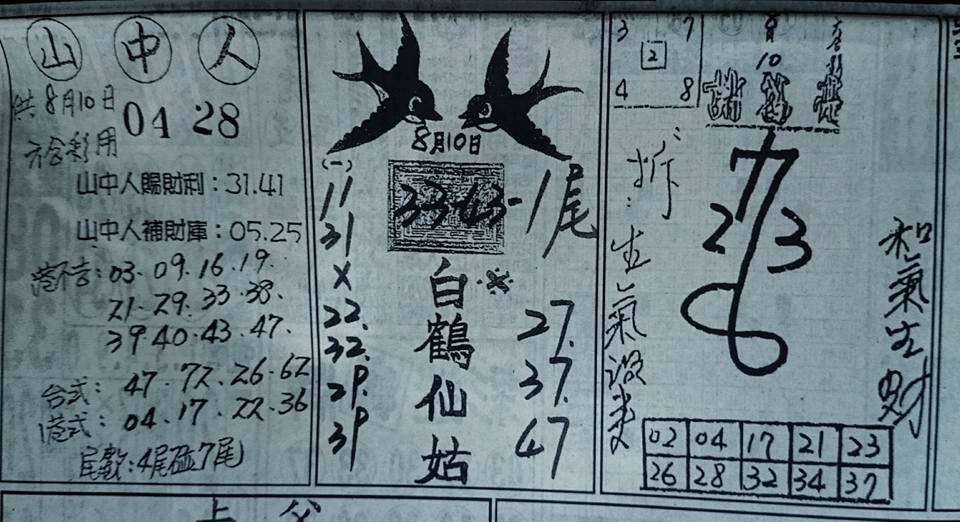 山中人
供8月10日
六合彩用
04 28
山中人賜財利:31.41
山中人補財庫:05.25
港不吉:03·09·16·19·
21·29·33·38·
39·40·43·47·
台式:47·72·26·62
港式:04·17·22·36
尾數:4尾碰7尾
8月10日
(一)
11
31
X
22.
32.
29.
39
33·43-1尾
白鶴仙姑
27.
37.
47
3 7
2
4 8
10
拆
生氣
和氣生財
77
2 3
02 04 17 21 23
26 28 32 34 37
上 父